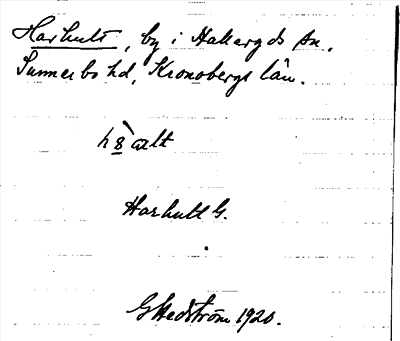 Harhult, by i Hallaryds sn,
Sunnerbo hd, Kronobergs län.
Harhult G.
G Hedström 1920.